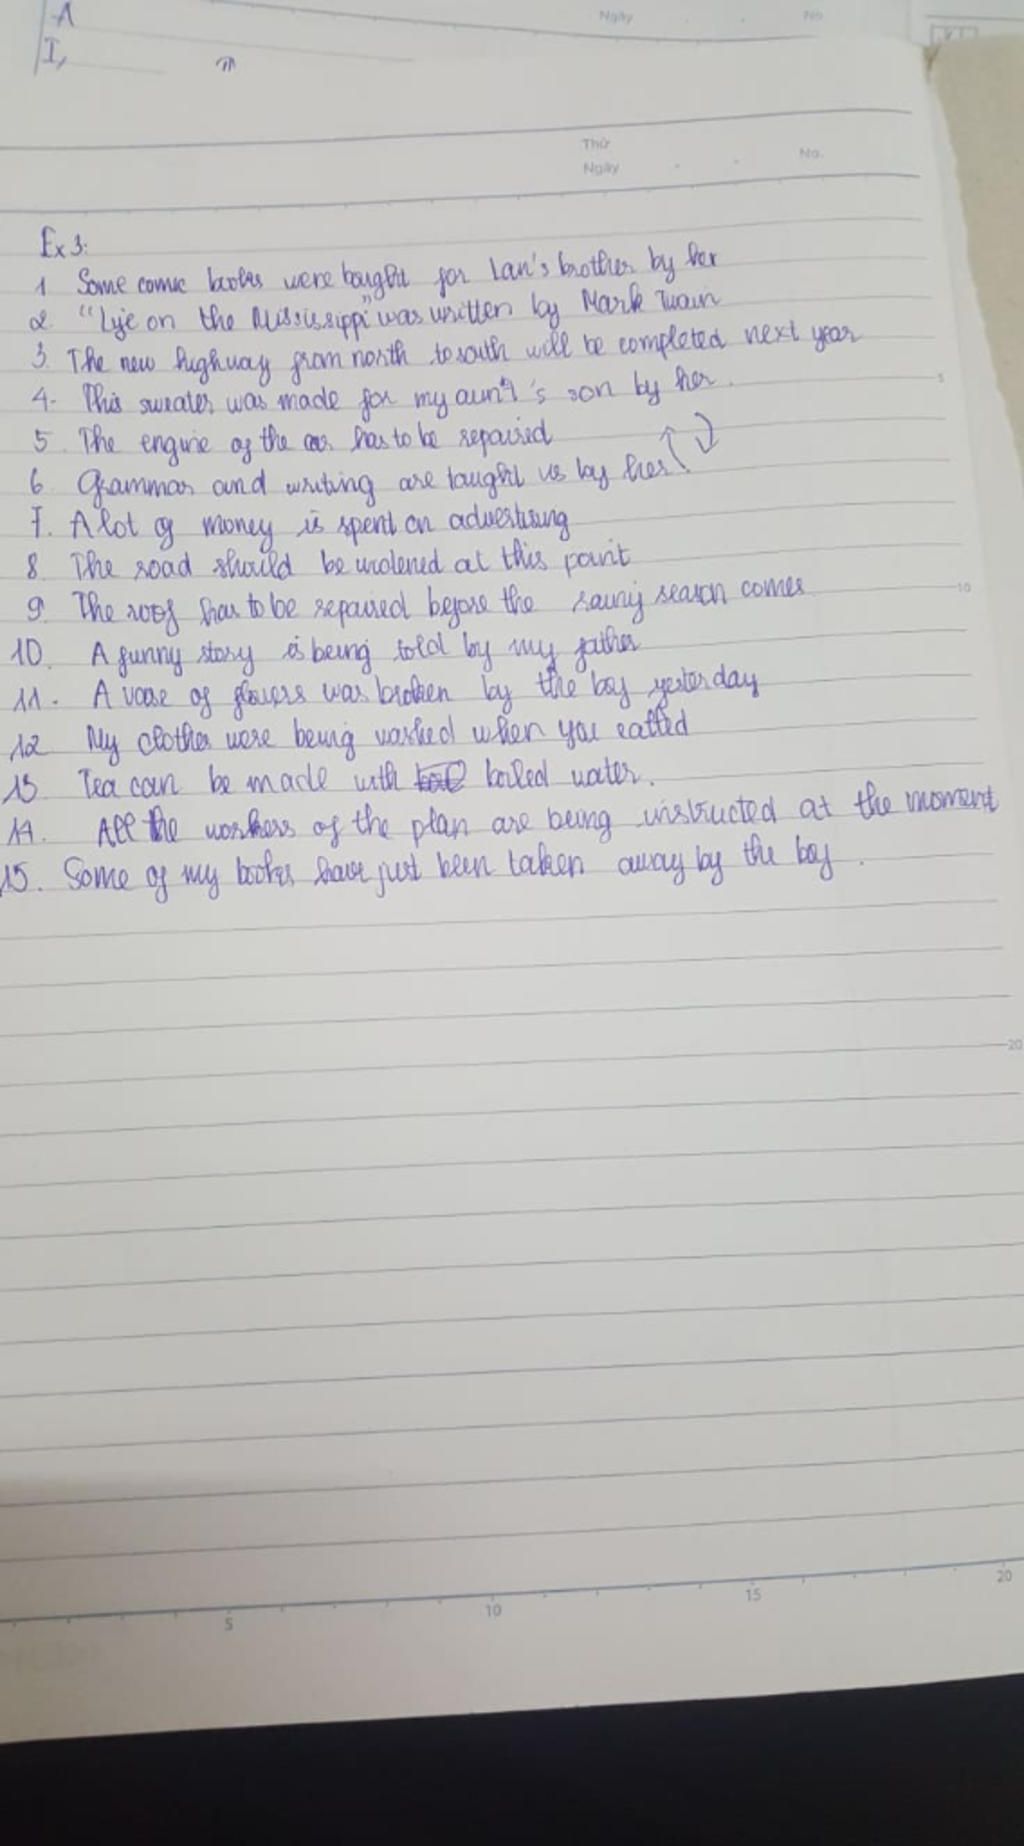 A
I,
Ngày
No
Thứ
Ngày
No.
Ex 3:
1 Some comic books were bought for Lan's brother by her
2 "Life on the Mississippi" was written by Mark Twain
3. The new highway from north to south will be completed next year
4. This sweater was made for my aunt's son by her.
5
5. The engine of the car has to be repaired
6 Grammar and writing are taught us by her
7. A lot of money is spent on advertising
8. The road should be widened at this point
9. The roof has to be repaired before the rainy season comes
10
10. A funny story is being told by my father
11. A vase of flowers was broken by the boy yesterday
12 My clothes were being washed when you called
13. Tea can be made with boiled water.
14. All the workers of the plan are being instructed at the moment
15. Some of my books have just been taken away by the boy.
20
5
10
15
20